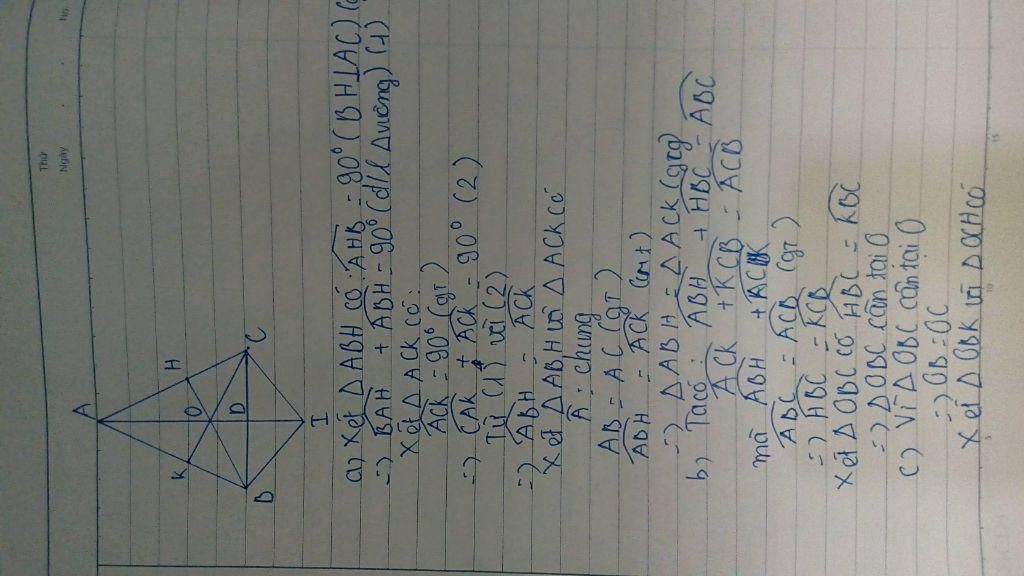 Thứ
Ngày
No.
A
K
H
O
D
B
C
I
a) Xét ΔABH có: AHB = 90° (BH⊥AC)
=> BAH + ABH = 90° (đl Δvuông) (1)
Xét ΔACK có:
ACK = 90° (gt)
=> CAK + ACK = 90° (2)
Từ (1) và (2)
=> ABH = ACK
Xét ΔABH và ΔACK có
A = chung
AB = AC (gt)
ABH = ACK (cmt)
=> ΔABH = ΔACK (gcg)
b) Ta có: ABH + HBC = ABC
ACK + KCB = ACB
mà ABH + ACK
ABC = ACB (gt)
=> HBC = KCB
Xét ΔOBC có HBC = KBC
=> ΔOBC cân tại O
c) Vì ΔOBC cân tại O
=> OB = OC
Xét ΔOBK và ΔOCH có
5
10
15